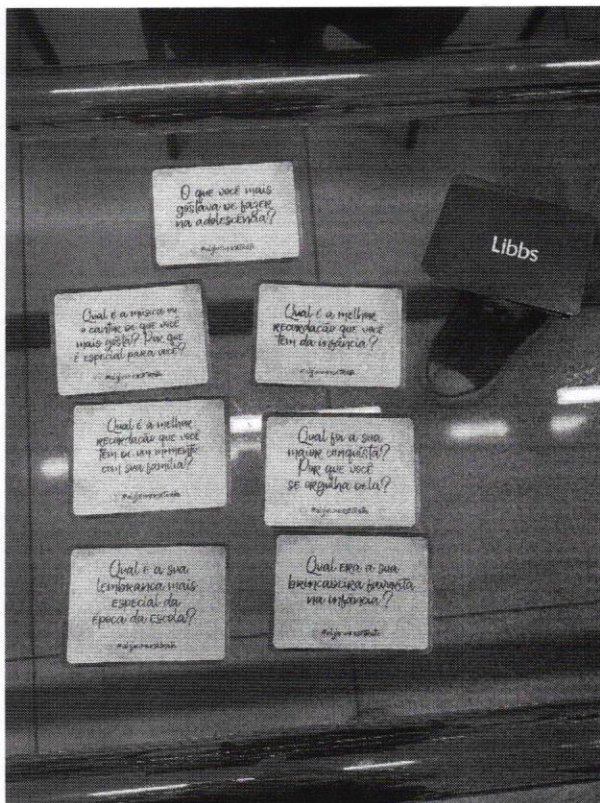 O que você mais
gostava de fazer
na adolescência?
Libbs
Qual é a música ou
o cantor de que você
mais gosta? Por que
é especial para você?
Qual é a melhor
recordação que você
tem da infância?
Qual é a melhor
recordação que você
tem de um momento
com sua família?
Qual foi a sua
maior conquista?
Por que você
se orgulha dela?
Qual é a sua
lembrança mais
especial da
época da escola?
Qual era a sua
brincadeira favorita
na infância?